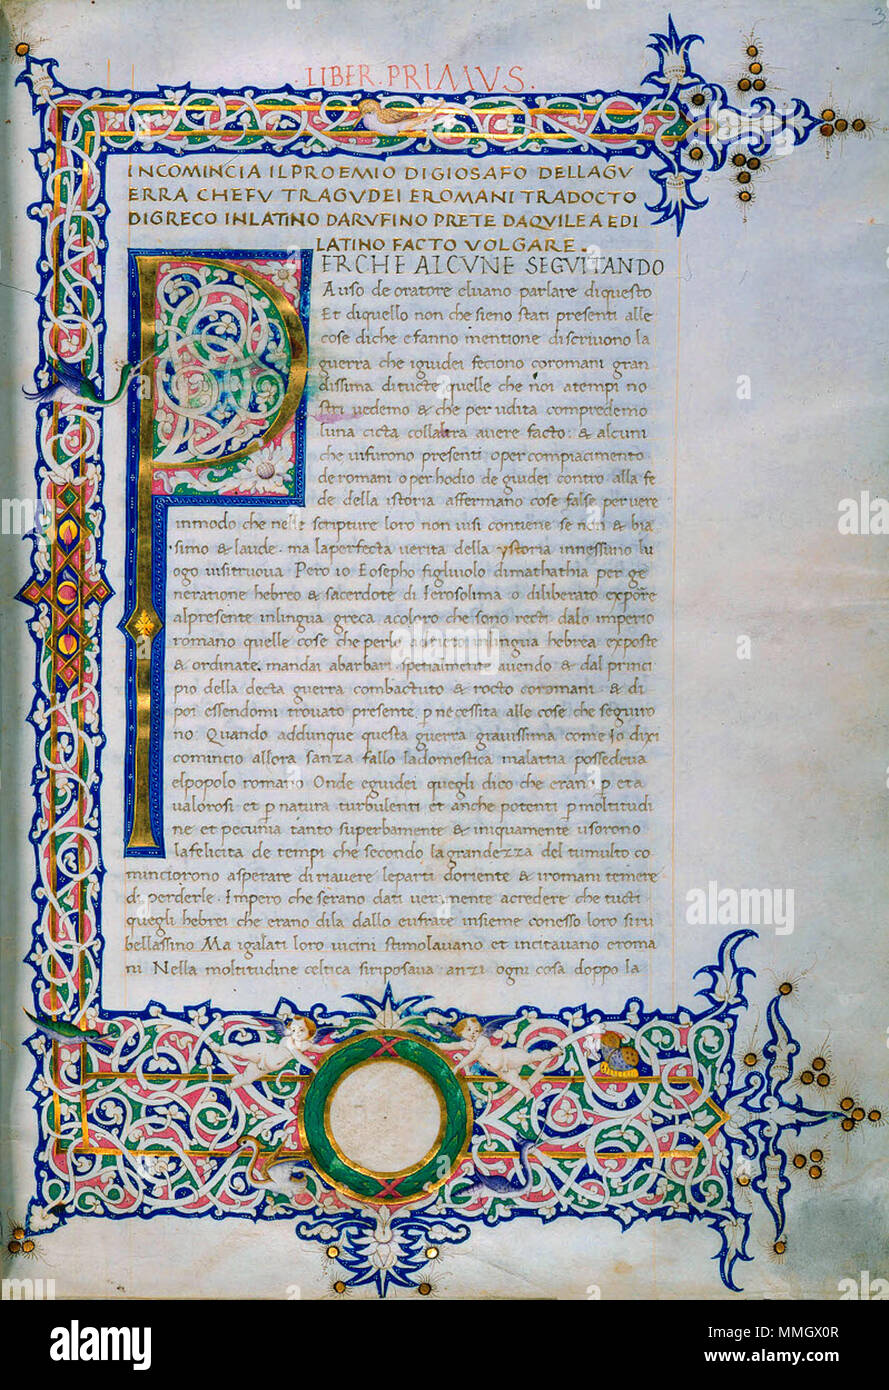 3
LIBER·PRIMVS·
INCOMINCIA IL PROEMIO DI GIOSAFO DELLA GV
ERRA CHE FV TRA GVDEI E ROMANI TRADOCTO
DI GRECO IN LATINO DA RVFINO PRETE DAQVILEA E DI
LATINO FACTO VOLGARE.
PERCHE ALCVNE SEGVITANDO
Auso de oratore eluano parlare di questo
Et di quello non che sieno stati presenti alle
cose di che e fanno mentione discriuono la
guerra che i guidei feciono coromani gran
dissima di tucte quelle che noi a tempi no
stri uedemo & che per udita compredemo
luna cicta collaltra auere facto: & alcuni
che ui furono presenti o per compiacimento
de romani o per hodio de guidei contro alla fe
de della istoria affermano cose false per uere
in modo che nelle scripture loro non uisi contiene se non & bia
simo & laude· ma la perfecta uerita della ystoria in nessuno lu
ogo uisi truoua Pero io Eosepho figluiolo di mathathia per ge
neratione hebreo & sacerdote di Ierosolima o diliberato expore
al presente in lingua greca a coloro che sono recti dalo imperio
romano quelle cose che perlo adrieto in lingua hebrea exposte
& ordinate· mandai a barbari spetialmente auendo & dal princi
pio della decta guerra combactuto & rocto coromani & di
poi essendomi trouato presente ꝑ necessita alle cose che seguiro
no· Quando addunque questa guerra grauissima come Io dixi
comincio allora sanza fallo la domestica malattia possedeua
el popolo romano Onde e guidei quegli dico che erano ꝑ eta
ualorosi et ꝑ natura turbulenti et anche potenti ꝑ moltitudi
ne et pecunia tanto superbamente & iniquamente usorono
la felicita de tempi che secondo la grandezza del tumulto co
minciorono a sperare di riauere le parti doriente & i romani temere
di perderle· Impero che serano dati ueramente a credere che tucti
quegli hebrei che erano di la dallo eufrate insieme con esso loro si ri
bellassino Ma i galati loro uicini stimolauano et incitauano e roma
ni Nella moltitudine celtica si riposaua anzi ogni cosa doppo la
alamy
Image ID: MMGX0R
www.alamy.com